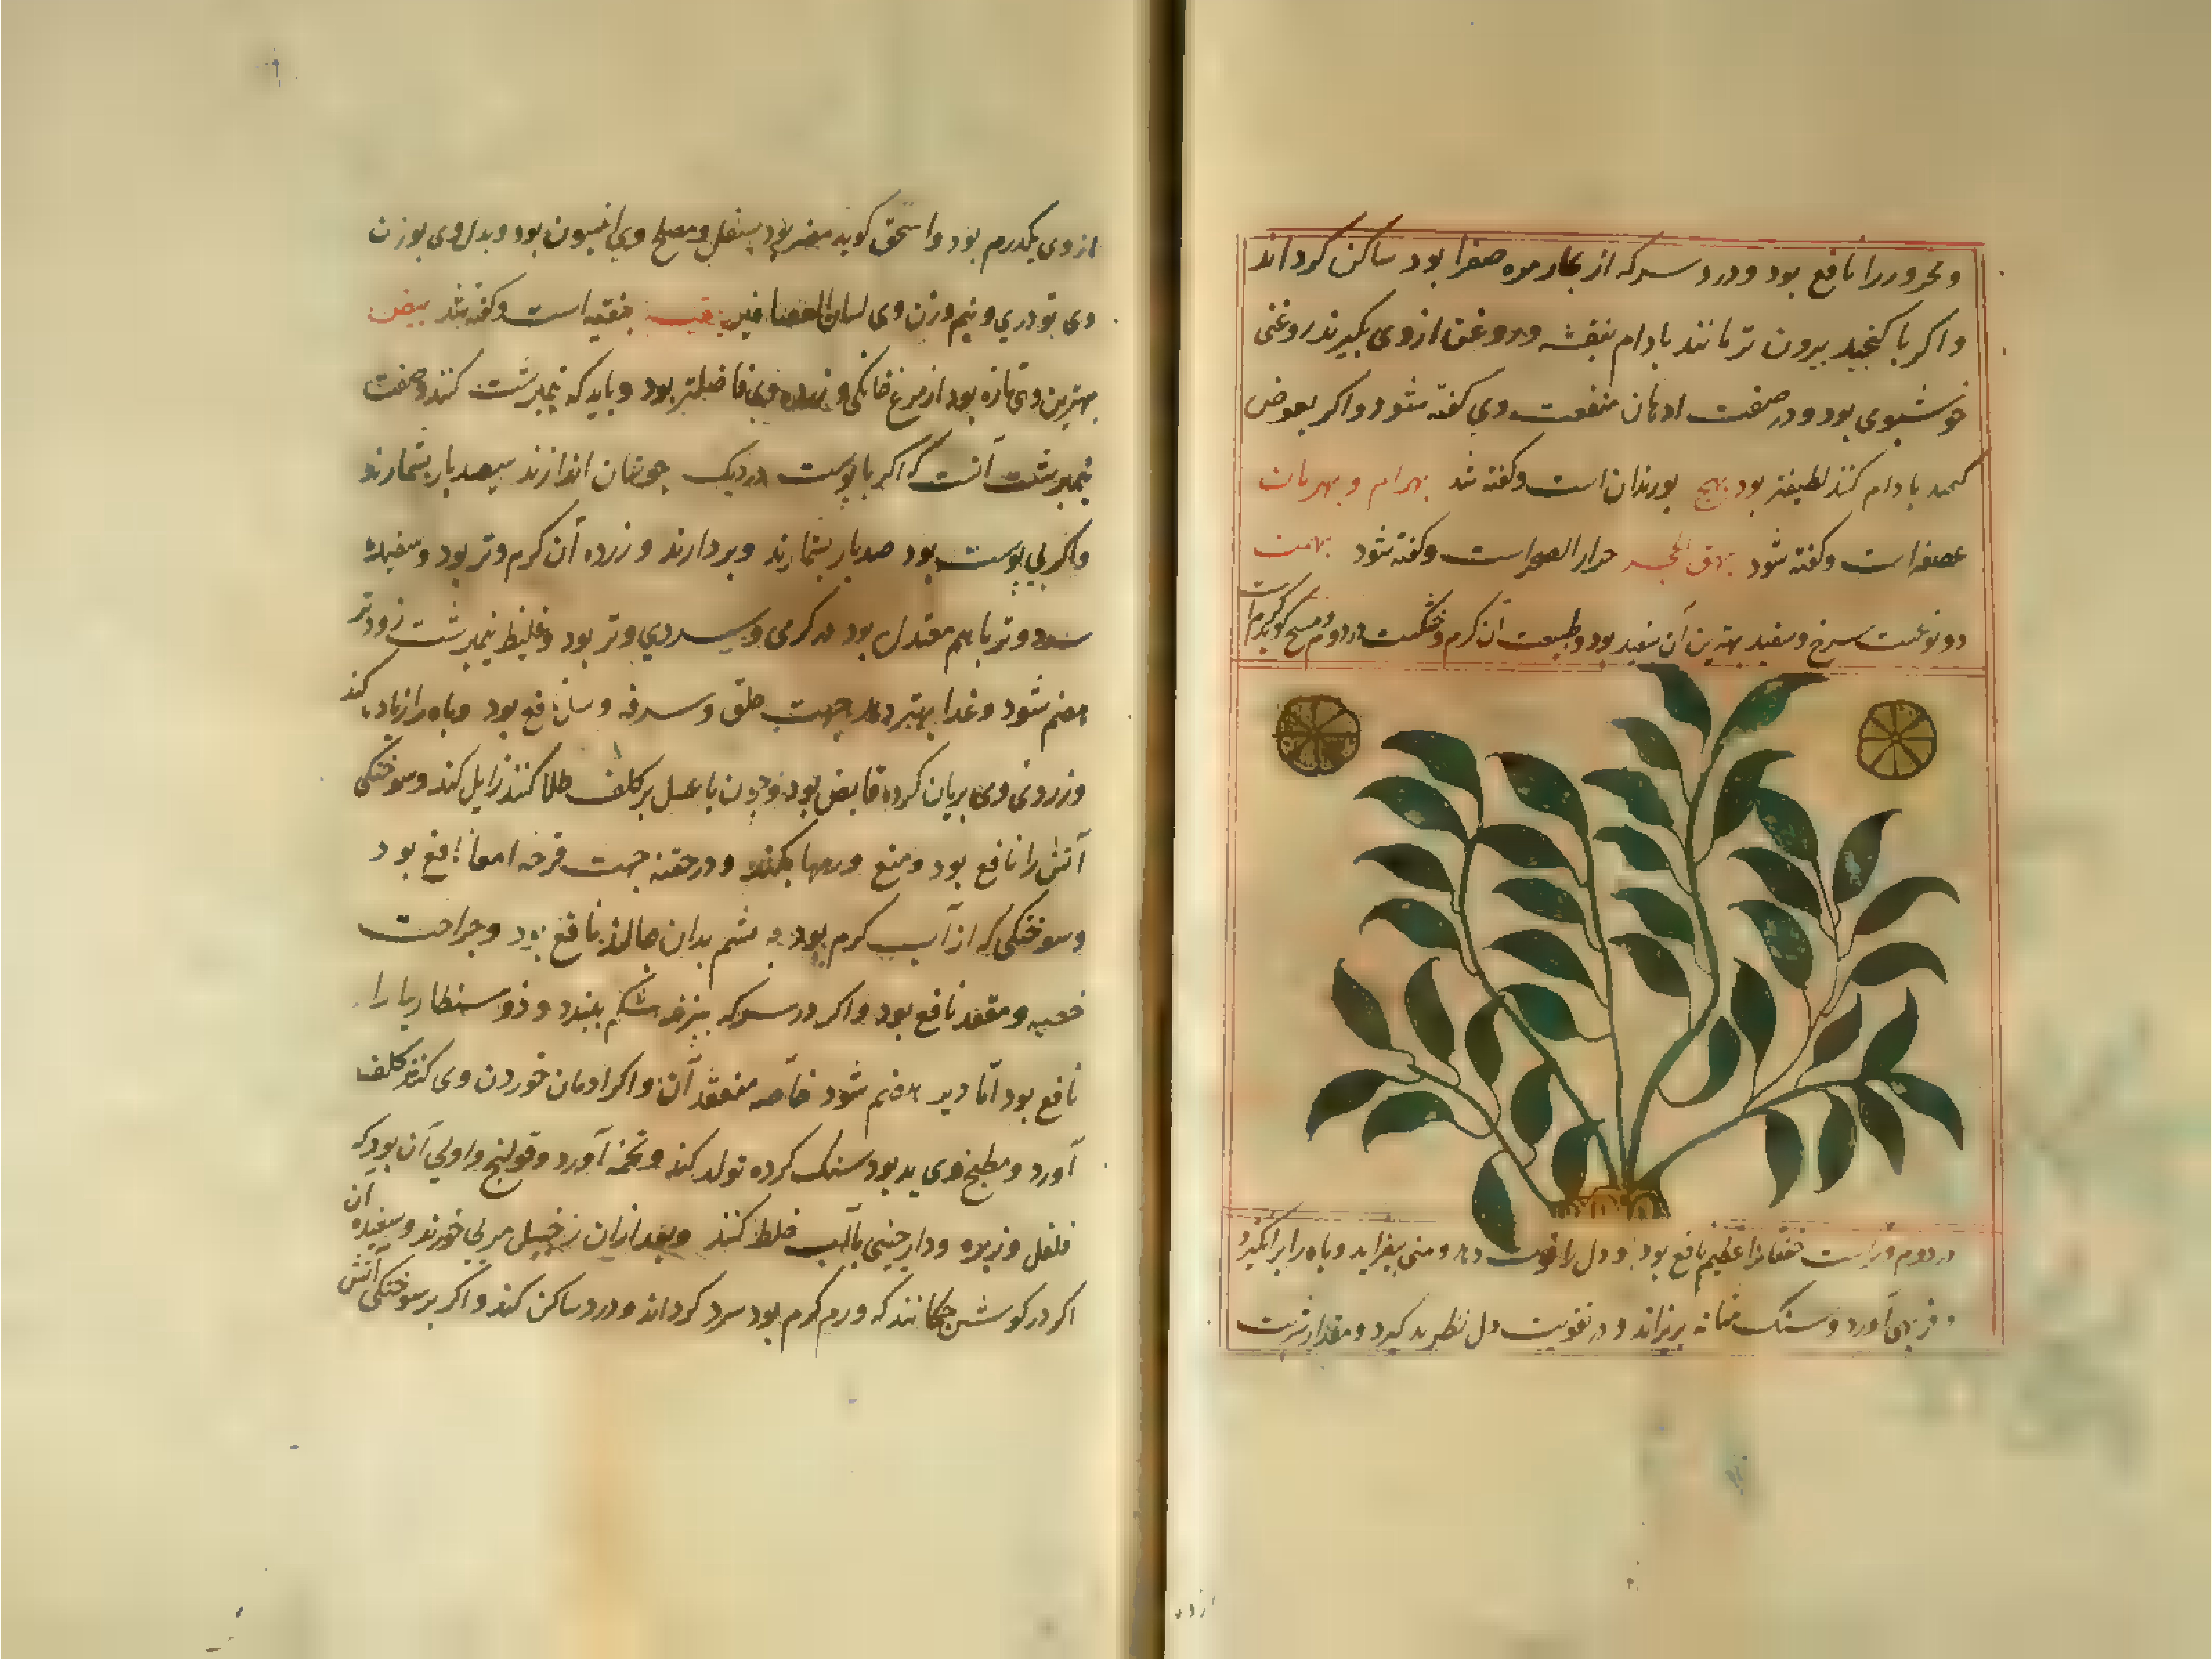 و محرور را نافع بود و درد سر که از بخار مره صفرا بود ساکن کرداند
و اکر با کنجید بیرون تر مانند بادام بنفشه و روغن ازوی بکیرند روغنی
خوشبوی بود و در صفت ادهان منفعت وی کفته شود و اکر بعوض
کنجید بادام کنند لطیفتر بود بهج بورندان است و کفته شد بهرام و بهرمان
عصفر است و کفته شود بهق الحجر حزاز الصخر است و کفته شود بهمن
دو نوعست سرخ و سفید بهترین آن سفید بود و طبیعت آن کرم و خشکست در دوم و مسیح کوید کرم است
در دوم و تر است خفقانرا عظیم نافع بود و دل را قوت دهد و منی بیفزاید و باه را برانکیزد
و فربهی آورد و سنک مثانه بریزاند و در تقویت دل نظیر ندارد و مقدار شربت
از وی
ازوی یکدرم بود و اسحق کوید مضر بود بسفل و مصلح وی انیسون بود و بدل وی بوزن
وی تودری و نیم وزن وی لسان العصافیر بود بنقیه است و کفته شد بیض
بهترین وی تازه بود از مرغ خانکی و زرده وی فاضلتر بود و باید که نیمبرشت کنند و صفت
نیمبرشت آنست که اکر با پوست در دیک جوشان اندازند سیصد بار بشمارند
و اکر بی پوست بود صد بار بشمارند و بردارند و زرده آن کرم و تر بود و سفیده
سرد و تر با هم معتدل بود در کرمی و سردی و تر بود و غلیظ نیمبرشت زودتر
هضم شود و غذا بهتر دهد جهت حلق و سرفه و سل نافع بود و باه را زیاده کند
و زردهٔ وی بریان کرده قابض بود و چون با عسل بر کلف طلا کنند زایل کند و سوختکی
آتش را نافع بود و منع ورمها بکند و در حقنه جهت قرحه امعا نافع بود
و سوختکی که از آب کرم بود به پشم بدان بمالند نافع بود و جراحت
خصیه و مقعد نافع بود و اکر در سرکه بپزند شکم ببندد و ذوسنطاریا را
نافع بود اما دیر هضم شود خاصه منعقد آن و اکر ادمان خوردن وی کنند کلف
آورد و مطبخ وی بد بود سنک کرده تولد کند و تخمه آورد و قولنج و اولی آن بود که
فلفل و زیره و دارچینی با آب خلط کنند و بعد ازان زنجبیل مربی خورند و سفیده آن
اکر در کوش چکانند که ورم کرم بود سرد کرداند و درد ساکن کند و اکر بر سوختکی آتش